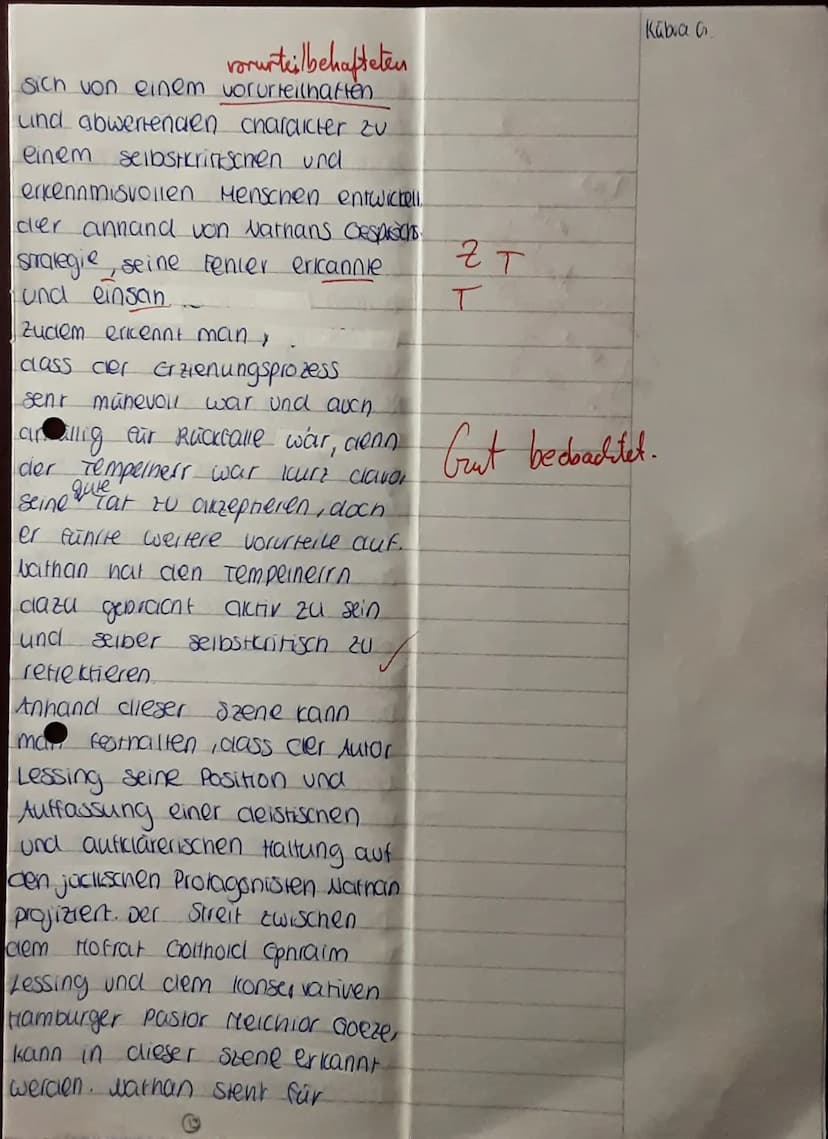 Kübra G.
vorurteilbehafteten
sich von einem vorurteilhaften
und abwertenden character zu
einem selbstkritischen und
erkenntnisvollen Menschen entwickelt
der anhand von Nathans Gesprächs
strategie, seine Fehler erkannte
Z T
und einsah
T
zudem erkennt man,
dass der Erziehungsprozess
sehr mühevoll war und auch
anfällig für Rückfälle war, denn
Gut beobachtet.
der Tempelherr war kurz davor
gute
seine Tat zu akzeptieren, doch
er führte weitere vorurteile auf.
Nathan hat den Tempelherrn
dazu gebracht aktiv zu sein
und selber selbstkritisch zu
reflektieren
Anhand dieser Szene kann
man festhalten, dass der Autor
Lessing seine Position und
Auffassung einer deistischen
und aufklärerischen Haltung auf
den jüdischen Protagonisten Nathan
projiziert. Der Streit zwischen
dem Hofrat Gotthold Ephraim
Lessing und dem konservativen
Hamburger Pastor Melchior Goeze,
kann in dieser Szene erkannt
werden. Nathan steht für